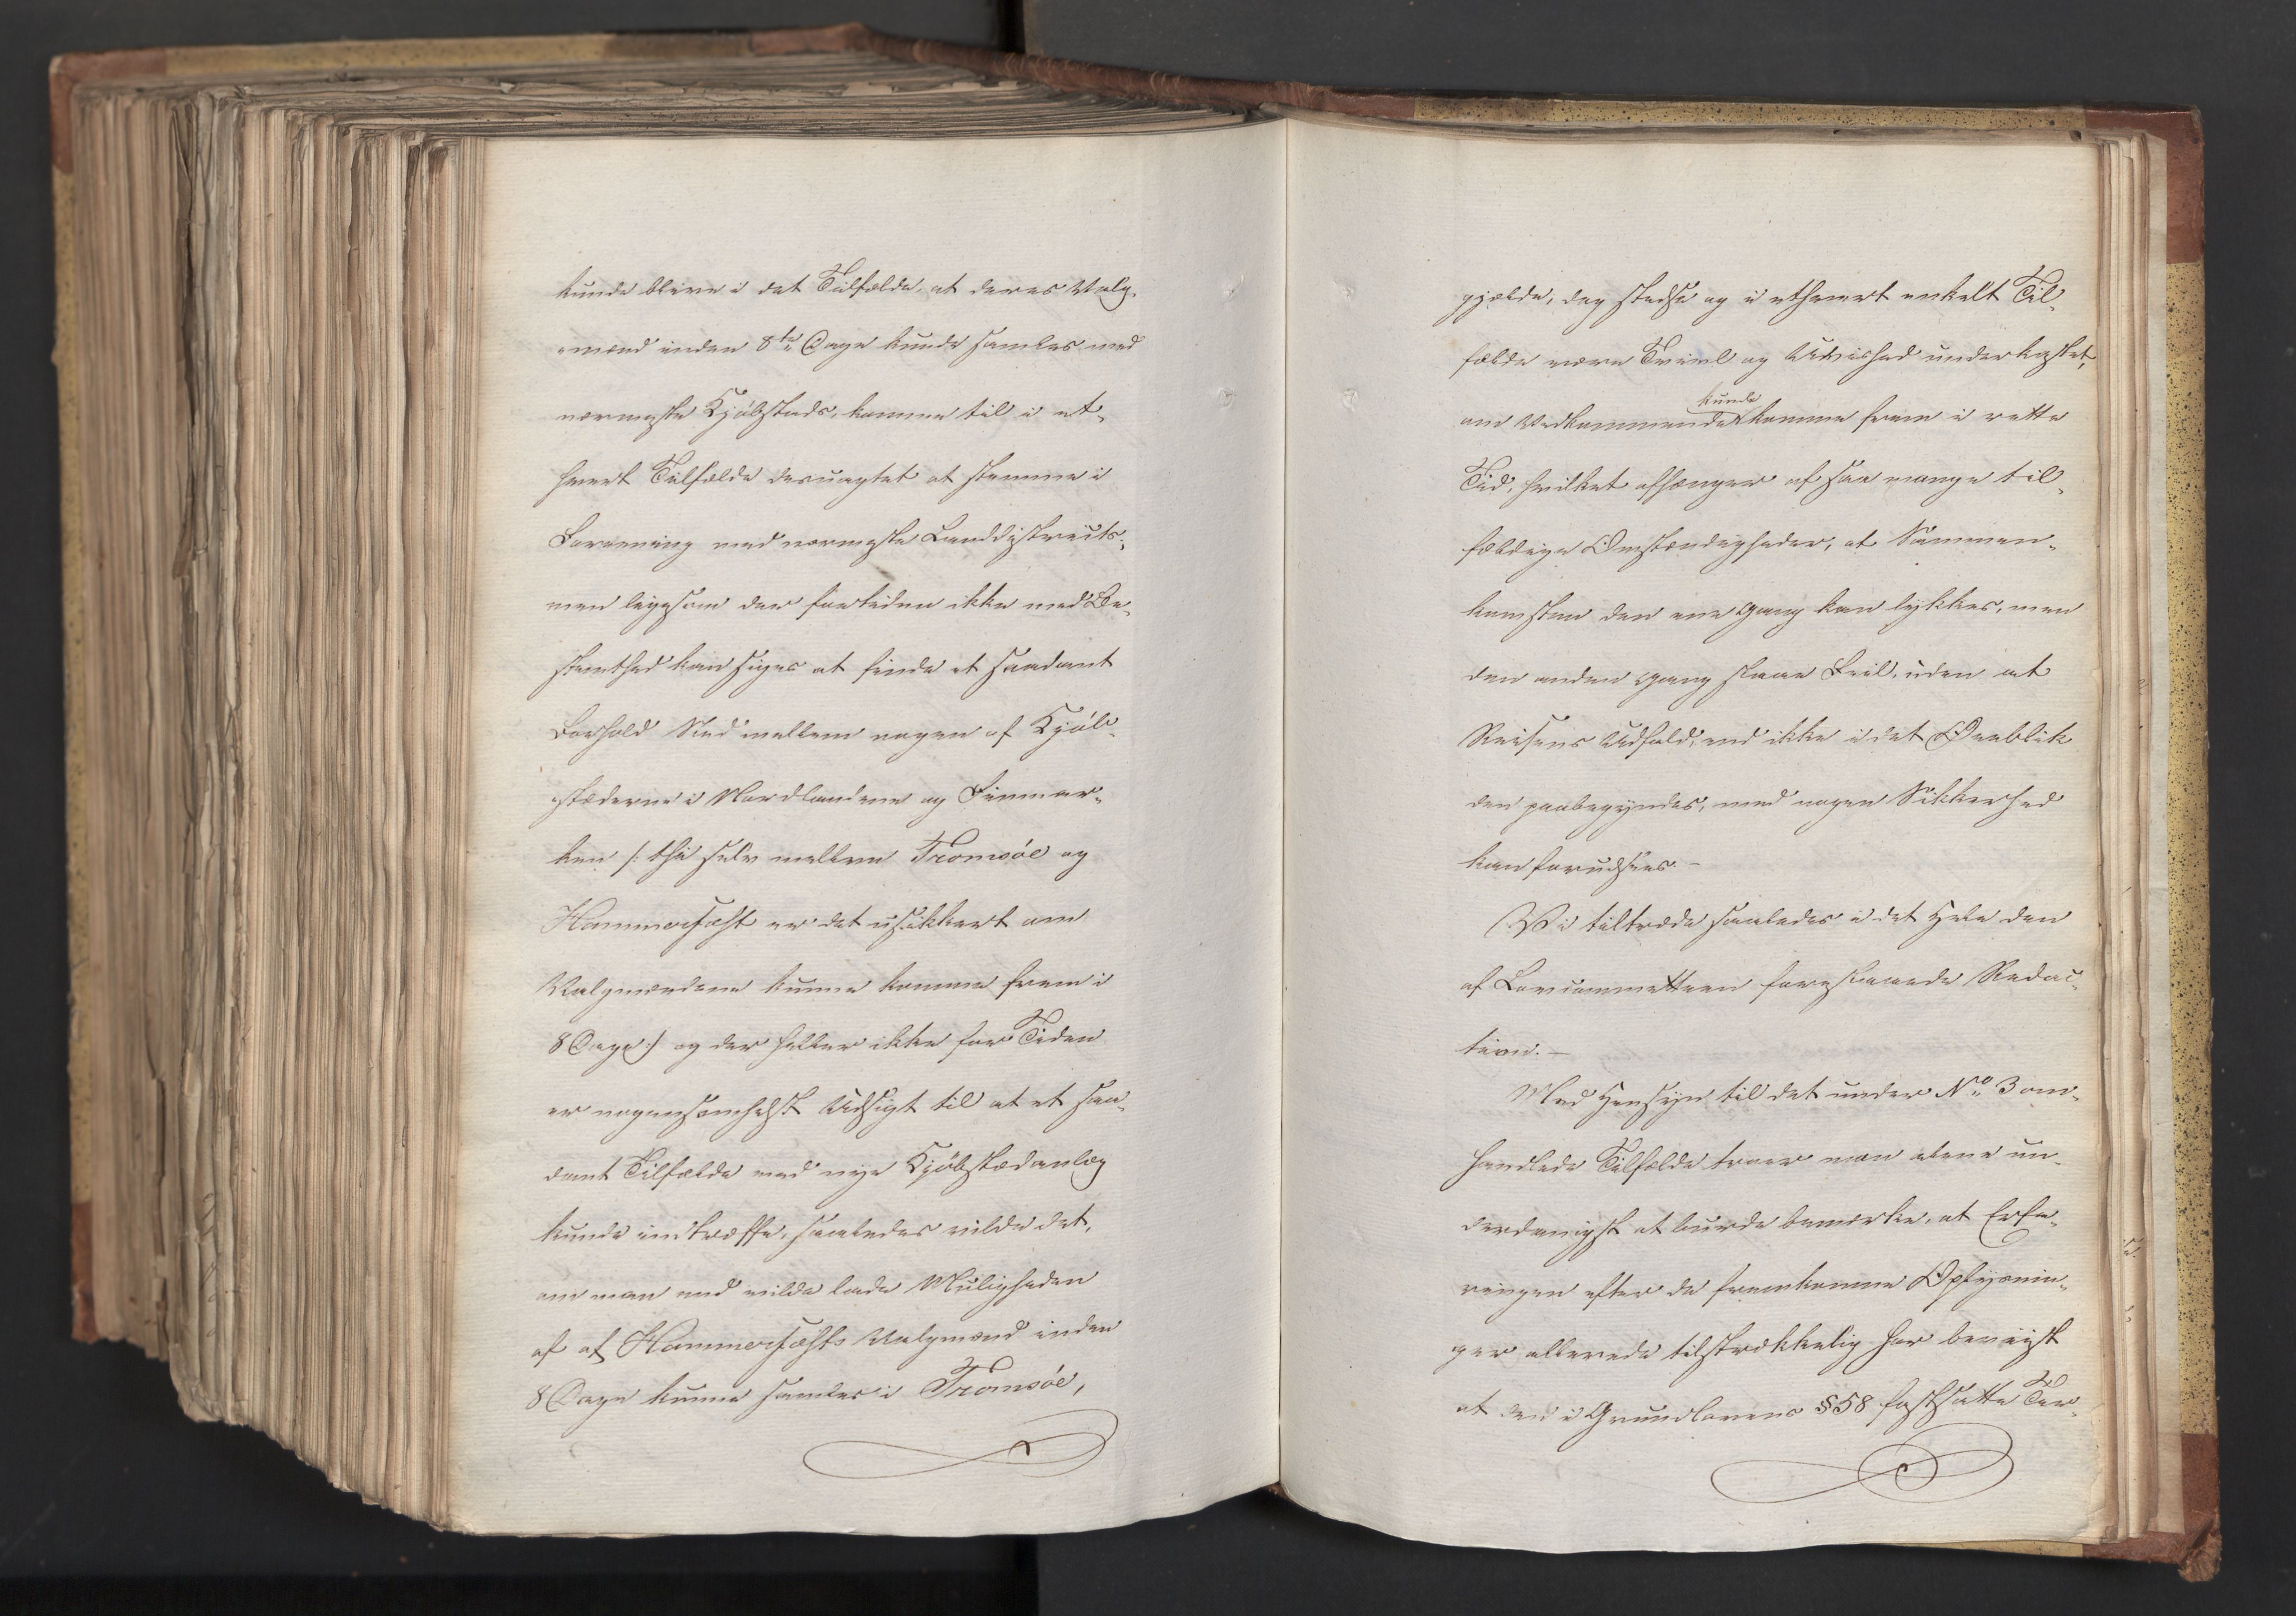 kunde blive i det Tilfælde, at deres Valg-
mænd inden 8te Dage kunde samles med
nærmeste Kjøbstads, komme til i et-
hvert Tilfælde desuagtet at stemme i
Forening med nærmeste Landdistricts;
men ligesom der for tiden ikke med Be-
stemthed kan siges at finde et saadant
Forhold Sted mellem nogen af Kjøb-
stæderne i Nordlandene og Finmar-
ken /: thi selv mellem Tromsöe og
Hammerfæst er det usikkert om
Valgmændene kunne komme frem i
8 Dage :/ og der heller ikke for Tiden
er nogensomhelst Udsigt til at et saa-
dant Tilfælde med nye Kjøbstædanlæg
kunde indtræffe, saaledes vilde det,
om man end vilde lade Muligheden
af at Hammerfæsts Valgmænd inden
8 Dage kunne samles i Tromsöe,
gjælde, dog stedse og i ethvert enkelt Til-
fælde være Tvivl og Uvished underkastet,
kunde
om Vedkommende komme frem i rette
Tid, hvilket afhænger af saa mange til-
fældige Omstændigheder, at Sammen-
komsten den ene Gang kan lykkes, men
den anden Gang slaae Feil, uden at
Reisens Udfald, end ikke i det Øieblik
den paabegyndes, med nogen Sikkerhed
kan forudsees. –
Vi tiltræde saaledes i det Hele den
af Lovcommitteen foreslaaede Redac-
tion. –
Med Hensyn til det under No 3 om-
handlede Tilfælde troer man alene un-
derdanigst at burde bemærke, at Erfa-
ringen efter de fremkomne Oplysnin-
ger allerede tilstrækkelig har beviist
at den i Grundlovens § 58 fastsatte Ter-